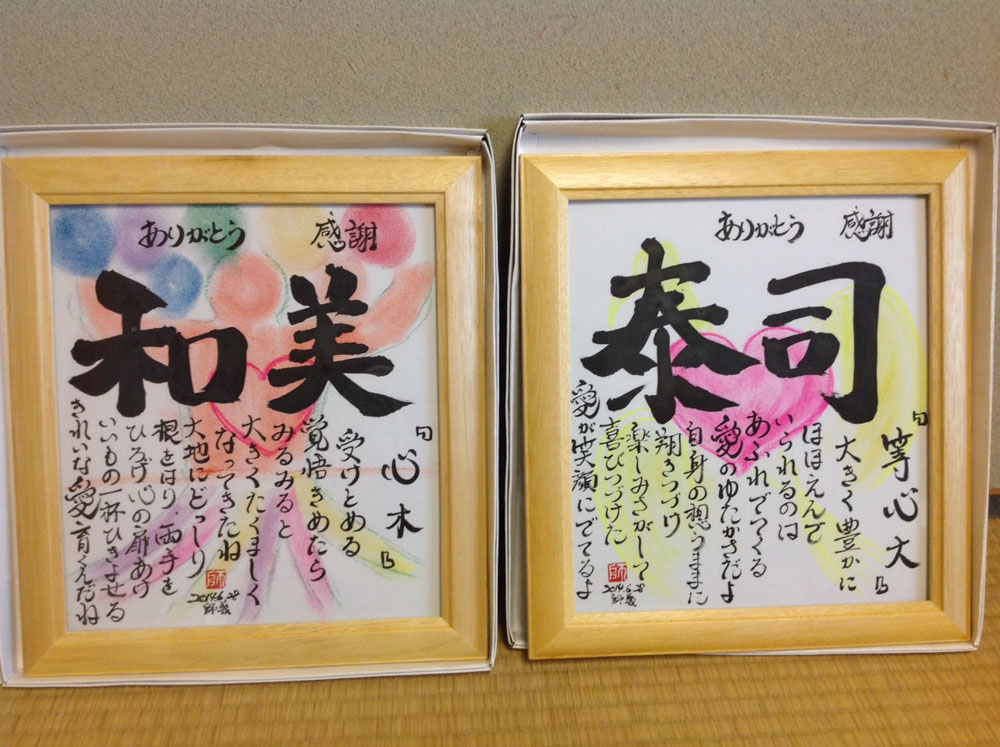 ありがとう 感謝
和美
「心木」
受けとめる
覚悟きめたら
みるみると
大きくたくましく
なってきたね
大地にどっしり
根をはり、両手を
ひろげ心の扉あけ
いいもの一杯ひきよせる
きれいな愛育くんだね
師
2014.6.28
師義
ありがとう 感謝
泰司
「等心大」
大きく豊かに
ほほえんで
いられるのは
あふれでてくる
愛のゆたかさだよ
自身の想うままに
翔きつづけ
楽しみさがして
喜びつづけた
愛が笑顔にでてるよ
師
2014.6.28
師義